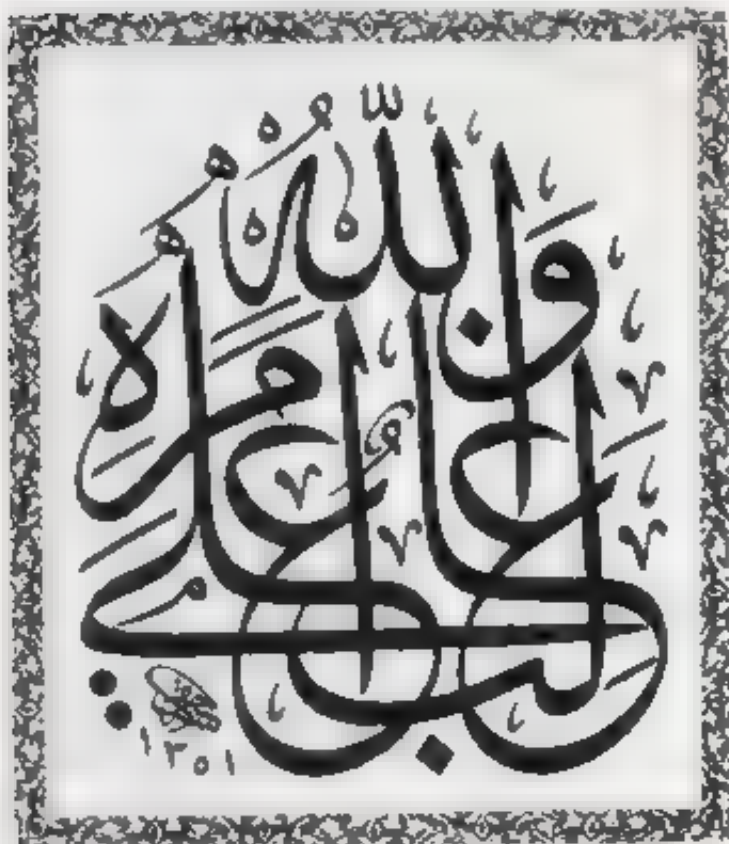 وَاللّٰهُ غَالِبٌ عَلَى أَمْرِهِ
١٣٥١